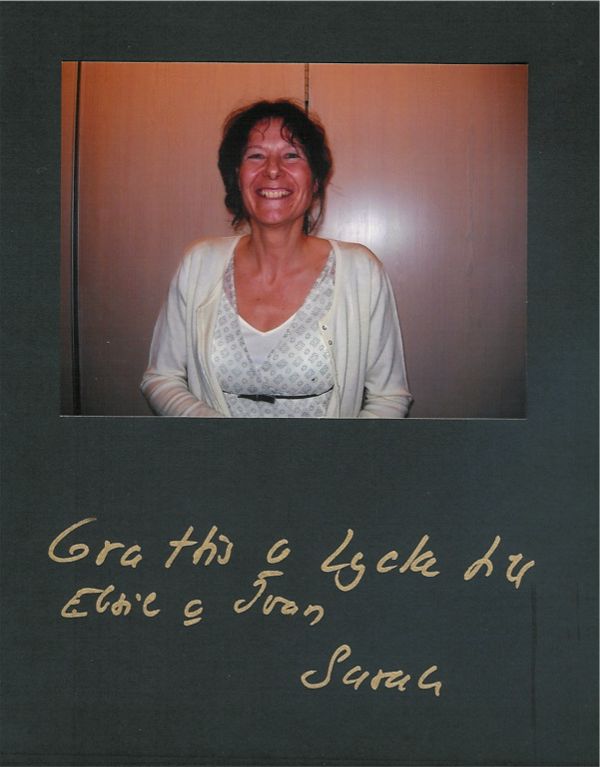 Gra ttis o Lycka till
Elsie o Ivan
Sarah